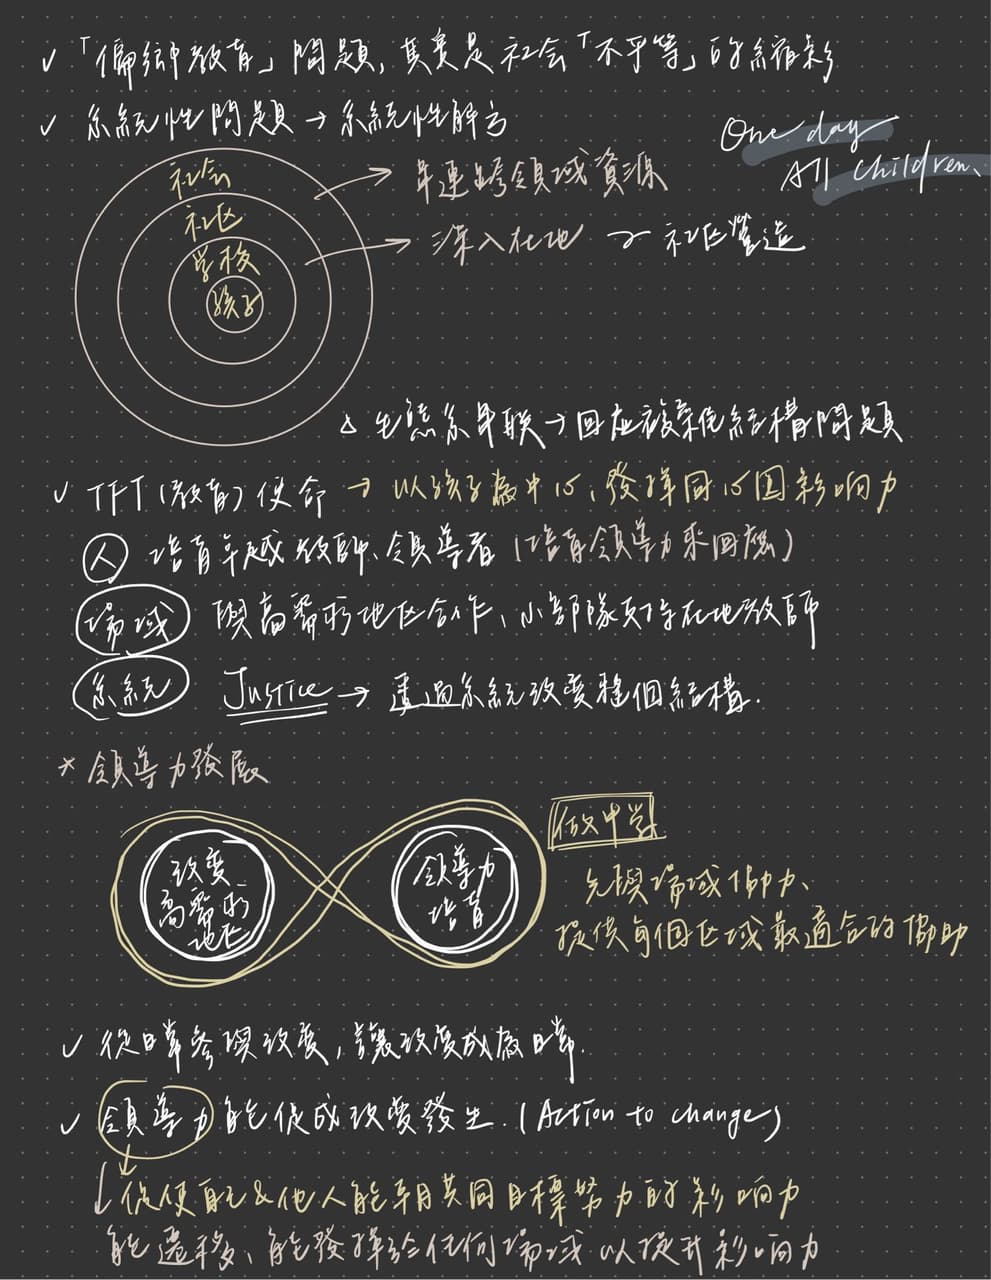 ✓「偏鄉教育」問題,其實是社会「不平等」的縮影
✓ 系統性問題→系統性解方
One day
All children、
社会
社区
学校
孩子
→ 串連跨領域資源
→ 深入在地 ~ 社区營造
△ 生態系串联→回应複雜化結構問題
✓ TFT(教育)使命 → 以孩子為中心、發揮同心圓影响力
人 培育卓越教師、領導者(培育領導力來回應)
場域 與高需求地区合作、小部隊支持在地教師
系統 Justice → 透過系統改変整個結構.
* 領導力發展
改変
高需求
地区
領導力
培育
做中学
先與場域協力、
提供每個区域最適合的協助
✓ 從日常參與改変,讓改変成為日常.
✓ 領導力能促成改変發生.(Action to change)
↓ 促使自己&他人能朝共同目標努力的影响力
能遷移、能發揮於任何場域以提升影响力